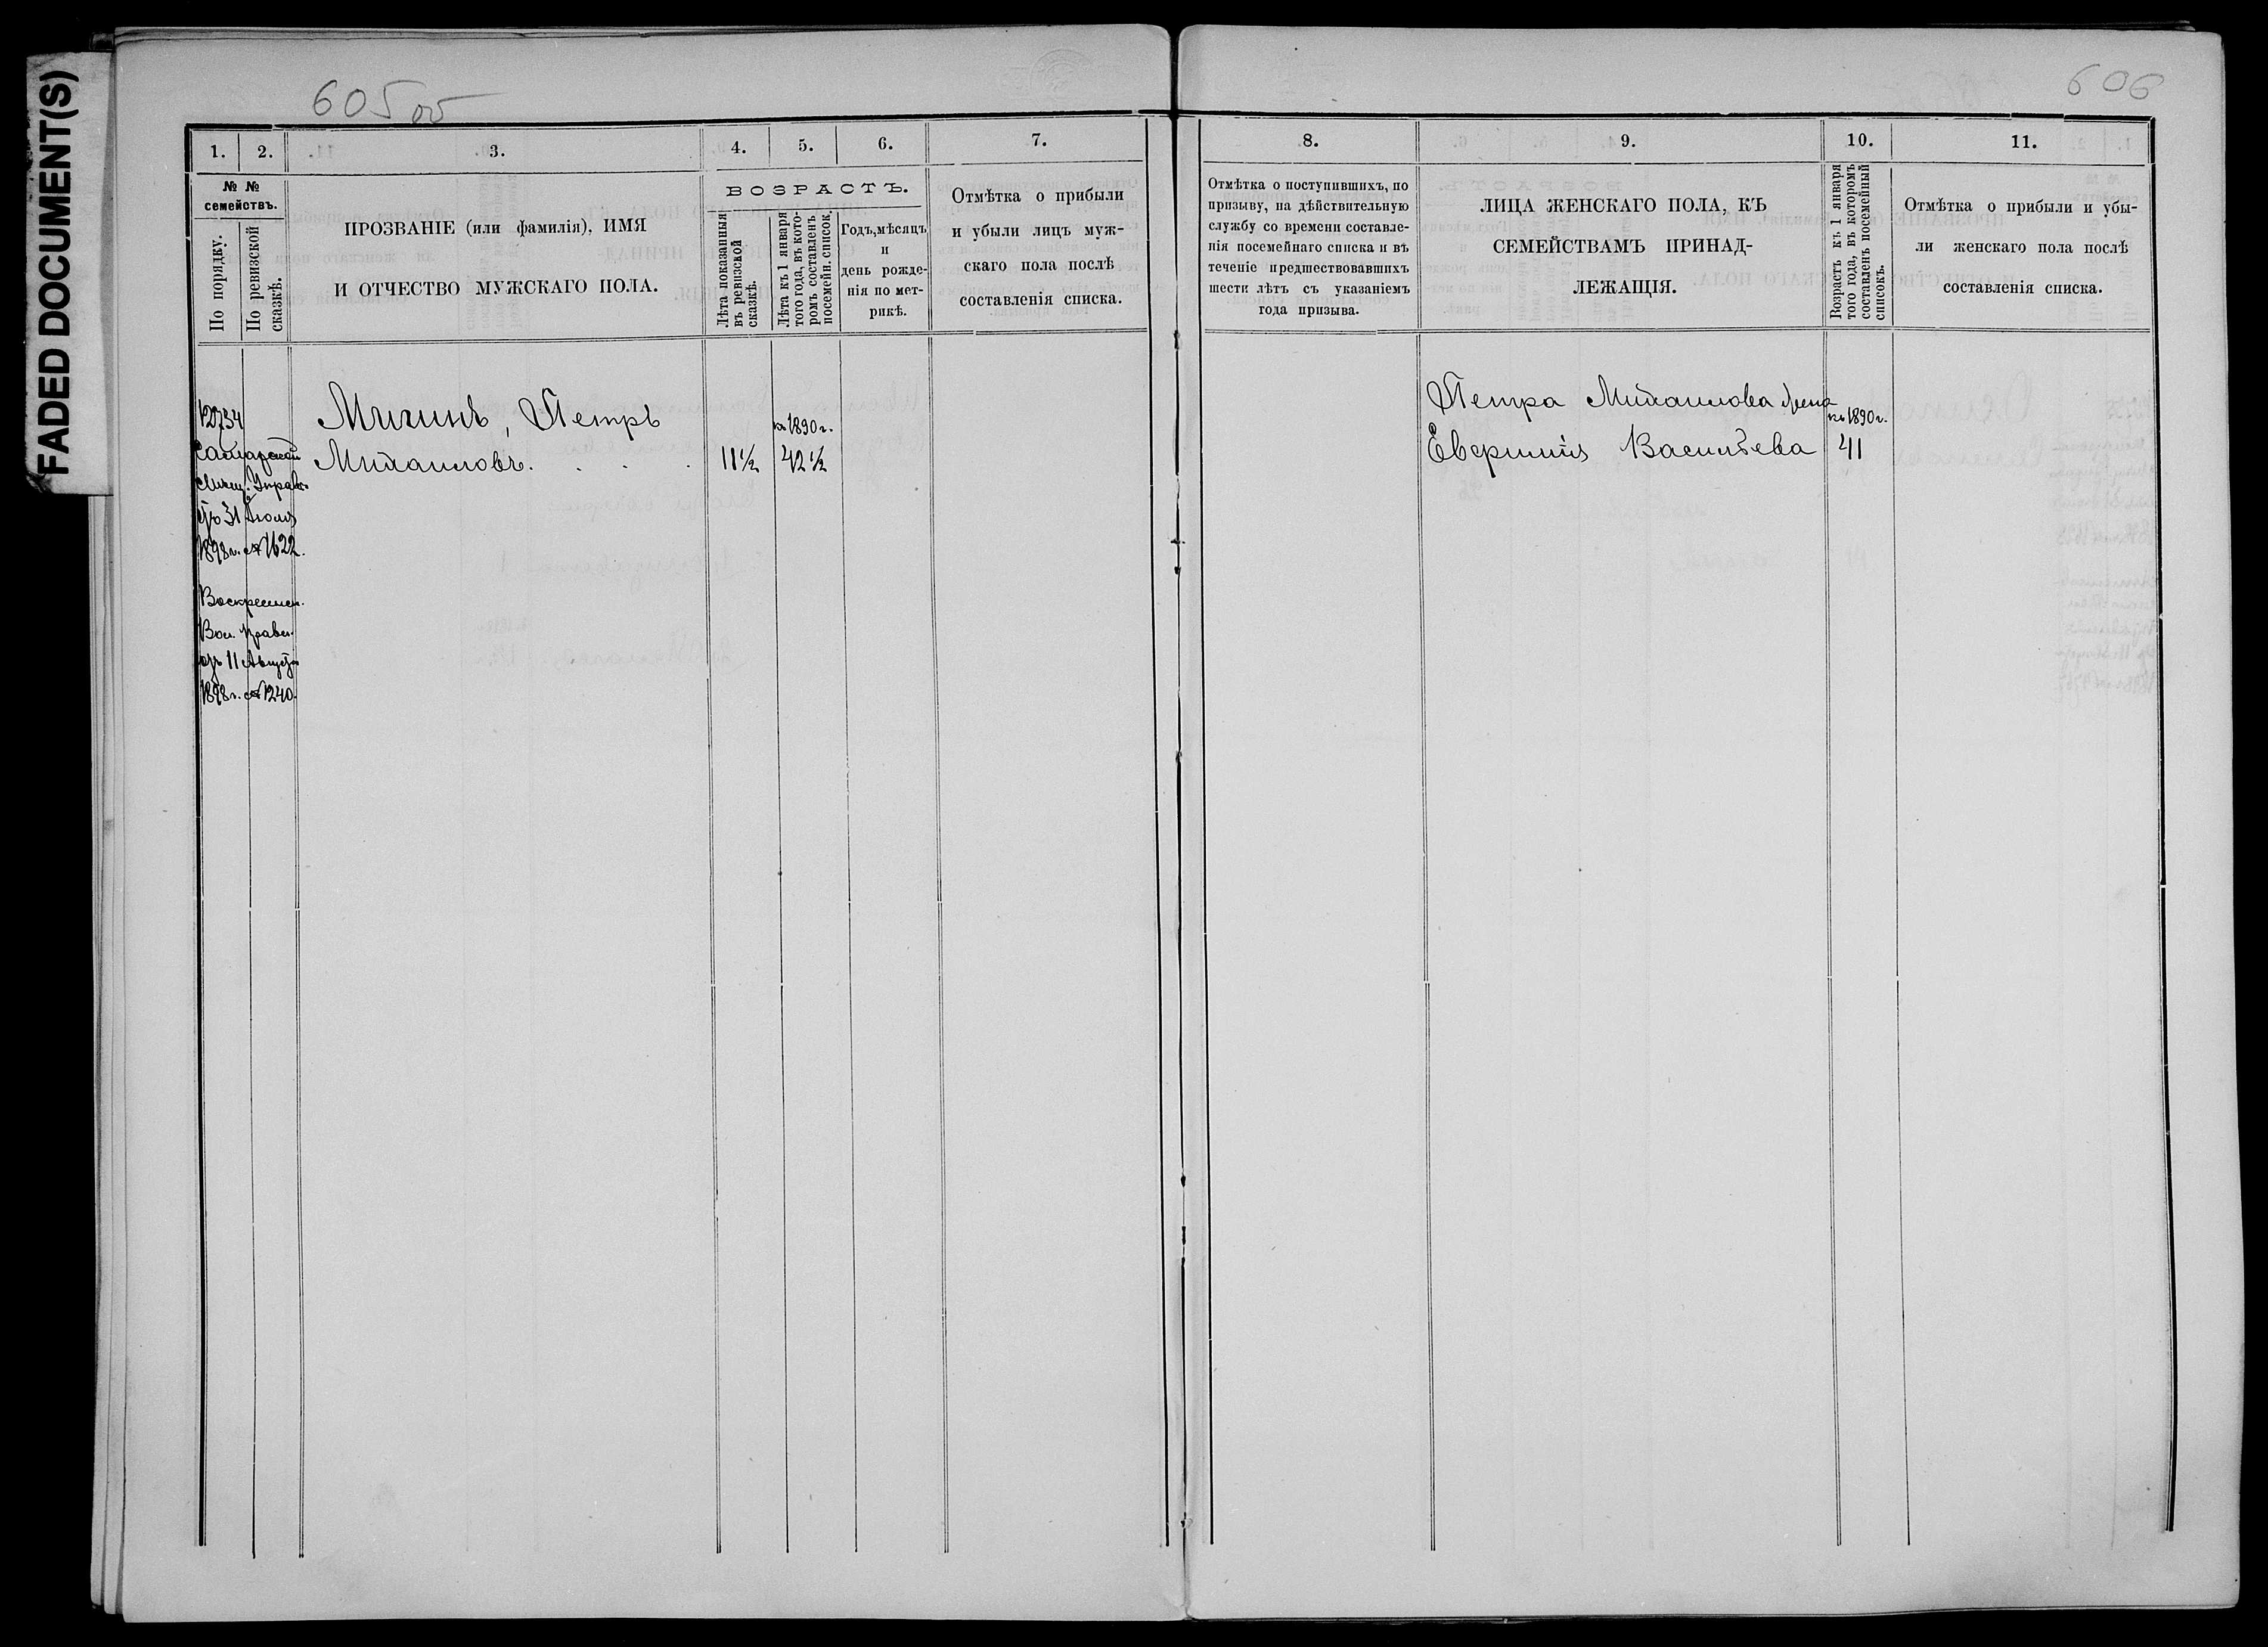 FADED DOCUMENT(S)
605 об
606
1.
2.
3.
4.
5.
6.
7.
№ №
семействъ.
По порядку.
По ревизской
сказкѣ.
ПРОЗВАНІЕ (или фамилія), ИМЯ
И ОТЧЕСТВО МУЖСКАГО ПОЛА.
ВОЗРАСТЪ.
Лѣта показанныя
въ ревизской
сказкѣ.
Лѣта къ 1 января
того года, въ кото-
ромъ составленъ
посемейн. список.
Годъ, мѣсяцъ
и
день рожде-
нія по мет-
рикѣ.
Отмѣтка о прибыли
и убыли лицъ муж-
скаго пола послѣ
составленія списка.
12734
Самарской
Мѣщ. Управ.
отъ 31 Іюля
1898 г. № 1622.
Воскресен.
Вол. Правл.
отъ 11 Августа
1898 г. № 1240.
Мигинъ, Петръ
Михаиловъ. . . . . 11½
къ 1890 г.
42½
8.
9.
10.
11.
Отмѣтка о поступившихъ, по
призыву, на дѣйствительную
службу со времени составле-
нія посемейнаго списка и въ
теченіе предшествовавшихъ
шести лѣтъ съ указаніемъ
года призыва.
ЛИЦА ЖЕНСКАГО ПОЛА, КЪ
СЕМЕЙСТВАМЪ ПРИНАД-
ЛЕЖАЩІЯ.
Возрастъ къ 1 января
того года, въ которомъ
составленъ посемейный
списокъ.
Отмѣтка о прибыли и убы-
ли женскаго пола послѣ
составленія списка.
Петра Михаилова жена
Васильева
къ 1890 г.
41